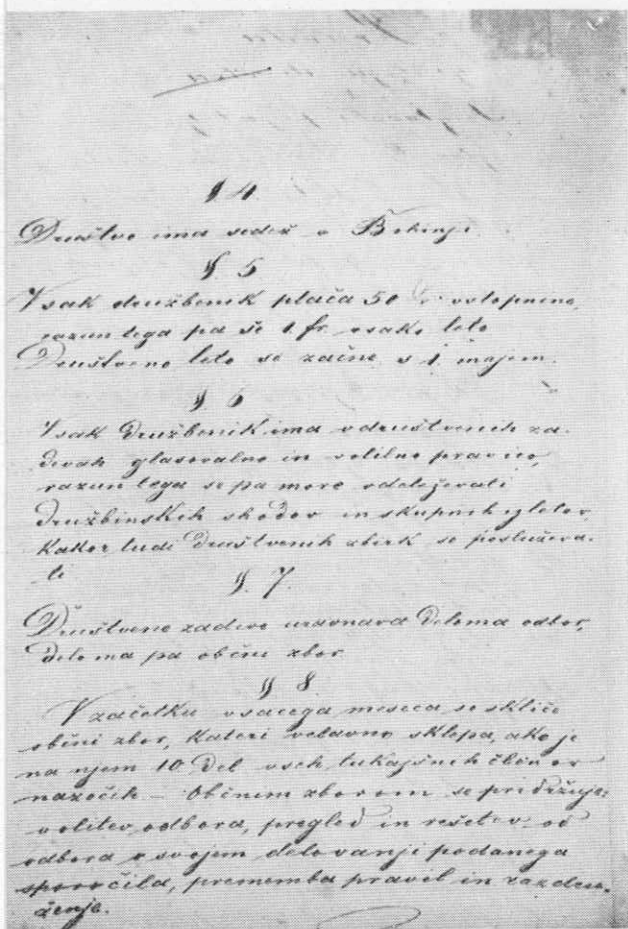 § 4
Društvo ima sedež v Bohinji.
§. 5
Vsak družbenik plača 50 vstopnine,
razun tega pa še 1 fr. vsako leto
Društveno leto se začne s 1. majem.
§ 6
Vsak družbenik ima v društvenih za-
devah glasovalno in volilno pravico,
razun tega se pa more vdeleževati
družbinskih shodov in skupnih izletov,
kakor tudi društvenih zbirk se posluževa-
ti
§. 7.
Društvene zadeve uravnava deloma odbor,
deloma pa občni zbor.
§ 8.
V začetku vsacega meseca se skliče
občni zbor, kateri veljavno sklepa, ako je
na njem 10. del vseh tukajšnih členov
nazočih – Občnem zborom se pridržuje:
volitev odbora, pregled in rešetev od
odbora o svojem delovanji podanega
sporočila, prememba pravil in razdru-
ženje.